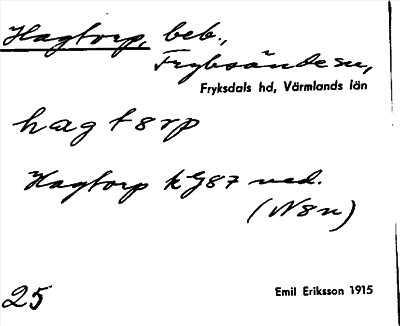 Hagtorp, beb.,
Fryksände sn,
Fryksdals hd, Värmlands län
hagtorp
Hagtorp kG87 ned.
(N8n)
25
Emil Eriksson 1915